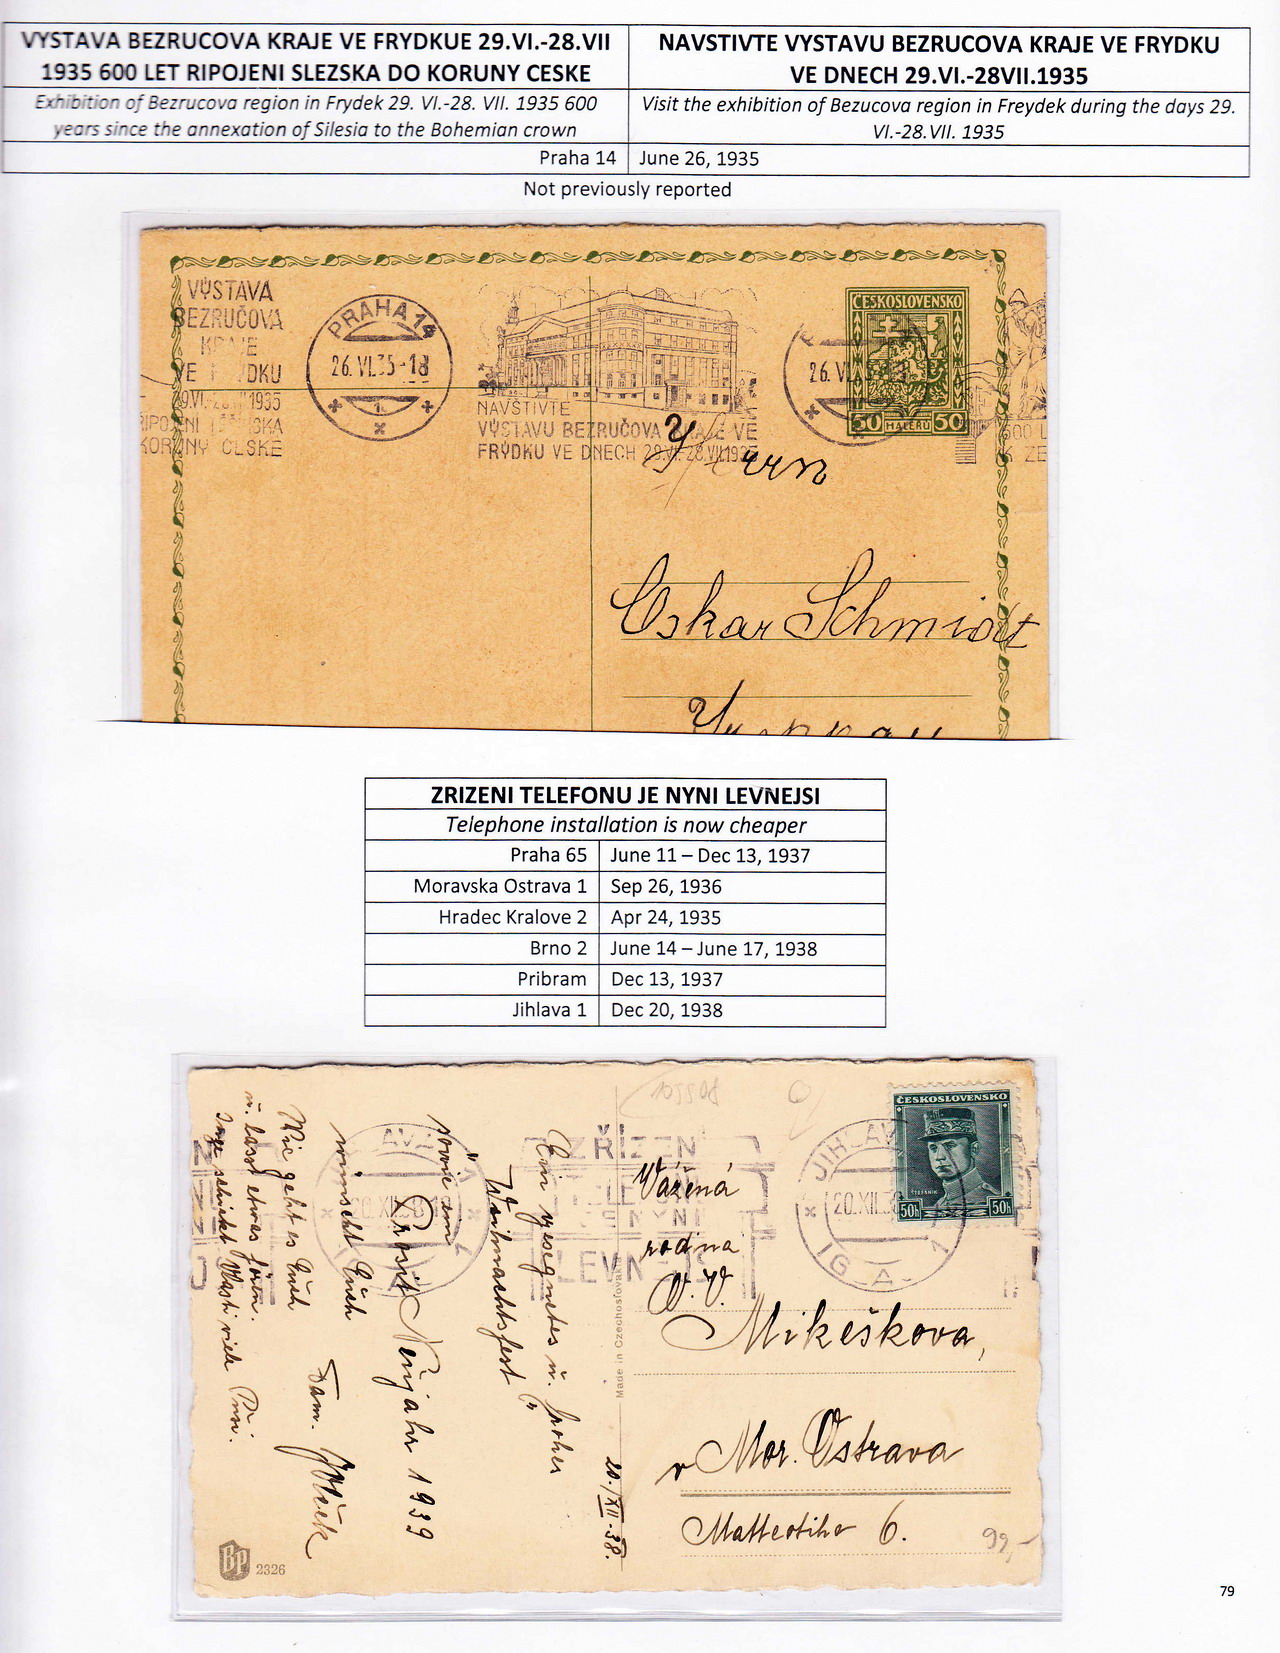 VYSTAVA BEZRUCOVA KRAJE VE FRYDKUE 29.VI.-28.VII
1935 600 LET RIPOJENI SLEZSKA DO KORUNY CESKE
Exhibition of Bezrucova region in Frydek 29. VI.-28. VII. 1935 600
years since the annexation of Silesia to the Bohemian crown
NAVSTIVTE VYSTAVU BEZRUCOVA KRAJE VE FRYDKU
VE DNECH 29.VI.-28VII.1935
Visit the exhibition of Bezucova region in Freydek during the days 29.
VI.-28.VII. 1935
Praha 14 June 26, 1935
Not previously reported
VÝSTAVA
BEZRUČOVA
VE
DKU
1935
PRAHA 14
26.VI.35-18
NAVŠTIVTE
VÝSTAVU BEZRUČOVA KRAJE VE
FRÝDKU VE DNECH 29.VI.-28.VII.1935
26.VI
ČESKOSLOVENSKO
50 HALÉŘŮ 50
Oskar Schmidt
ZRIZENI TELEFONU JE NYNI LEVNEJSI
Telephone installation is now cheaper
Praha 65 June 11 – Dec 13, 1937
Moravska Ostrava 1 Sep 26, 1936
Hradec Kralove 2 Apr 24, 1935
Brno 2 June 14 – June 17, 1938
Pribram Dec 13, 1937
Jihlava 1 Dec 20, 1938
Ein gesegnetes u. frohes
Weihnachtsfest
sowie ein
Prosit Neujahr 1939
wünscht Euch
Fam.
Wie geht es Euch
20./XII.38.
Made in Czechoslovakia
BP
2326
ZŘÍZEN
NYNÍ
LEVNĚJŠ
JIHLAV
20.XII.38
IGLA 1
ČESKOSLOVENSKO
ŠTEFÁNIK
50h 50h
Vážená
rodina
Mikeškova,
v Mor. Ostrava
6.
99,-
79